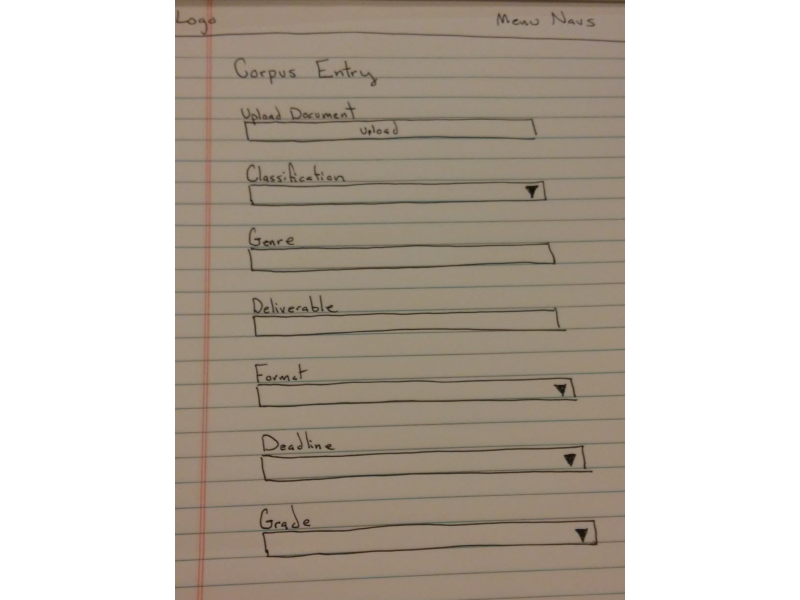 Logo
Menu Navs
Corpus Entry
Upload Document
Upload
Classification
Genre
Deliverable
Format
Deadline
Grade